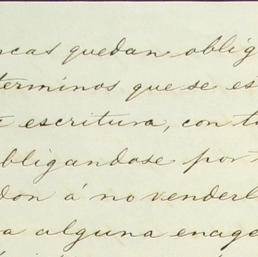 ncas quedan oblig
terminos que se es
escritura, con to
bligandose por
don á no venderl
a alguna enage